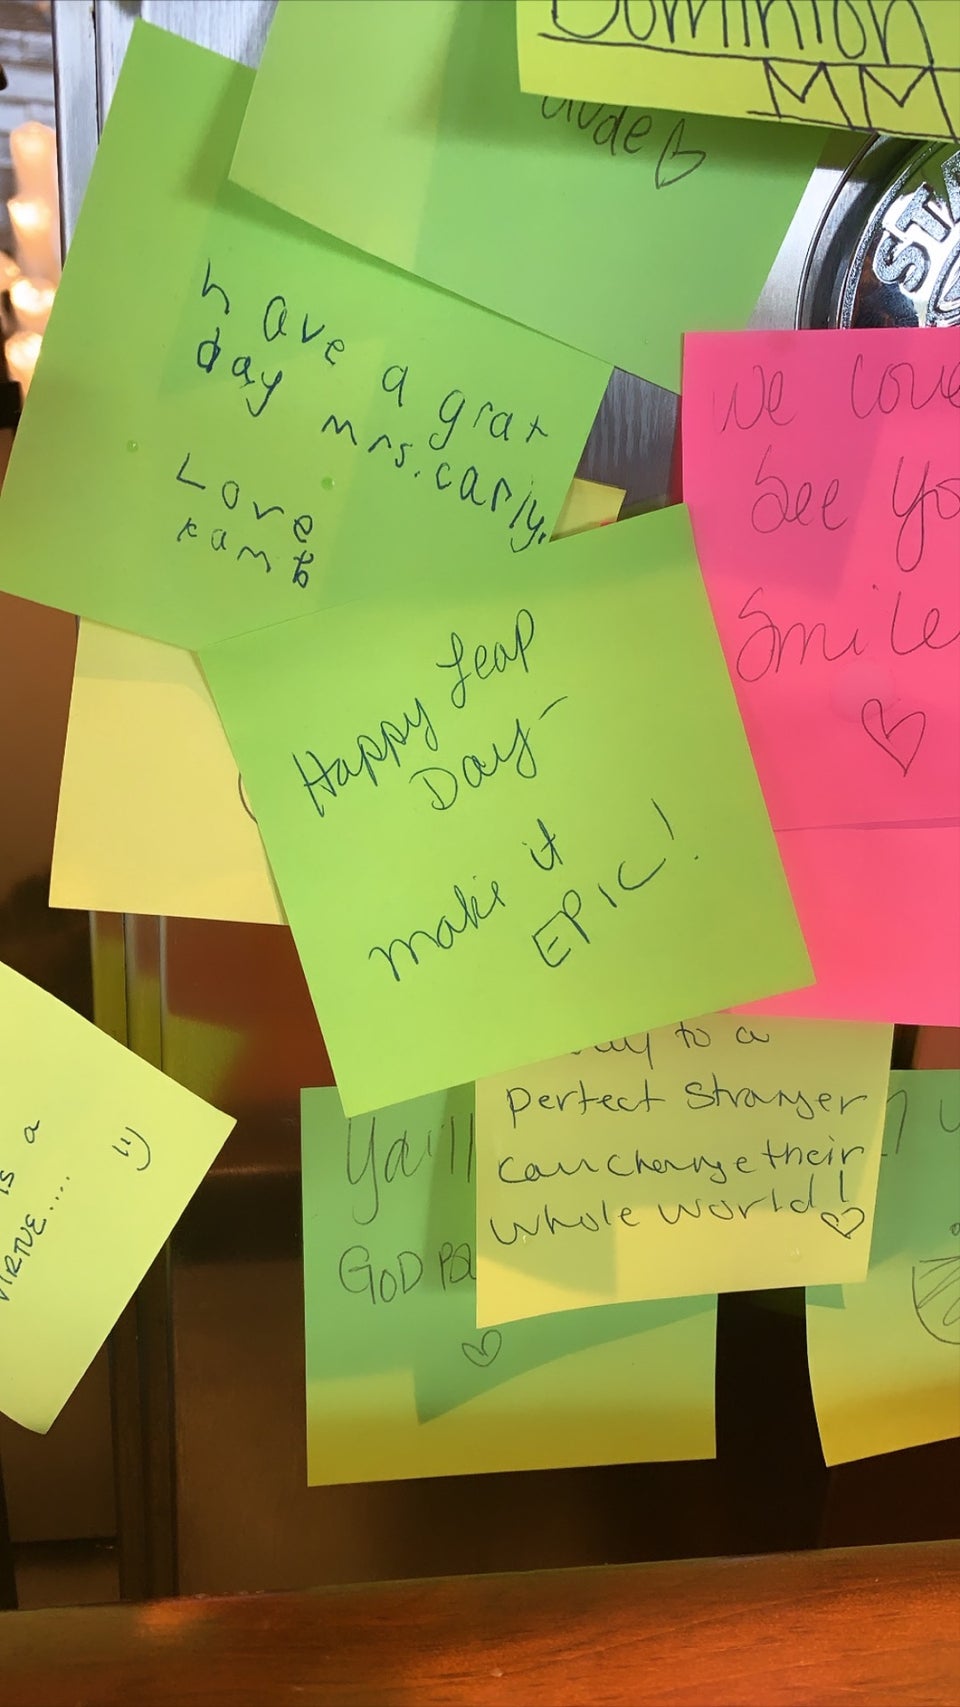 Dominion
MM
dude
have a grat
day mrs.carly.
Love
kam
we love
See yo
Smile
Happy Leap
Day-
make it
EPIC!
to a
perfect stranger
can change their
whole world!
Ya'll
GOD
is a
VIRTUE.... :)
STA